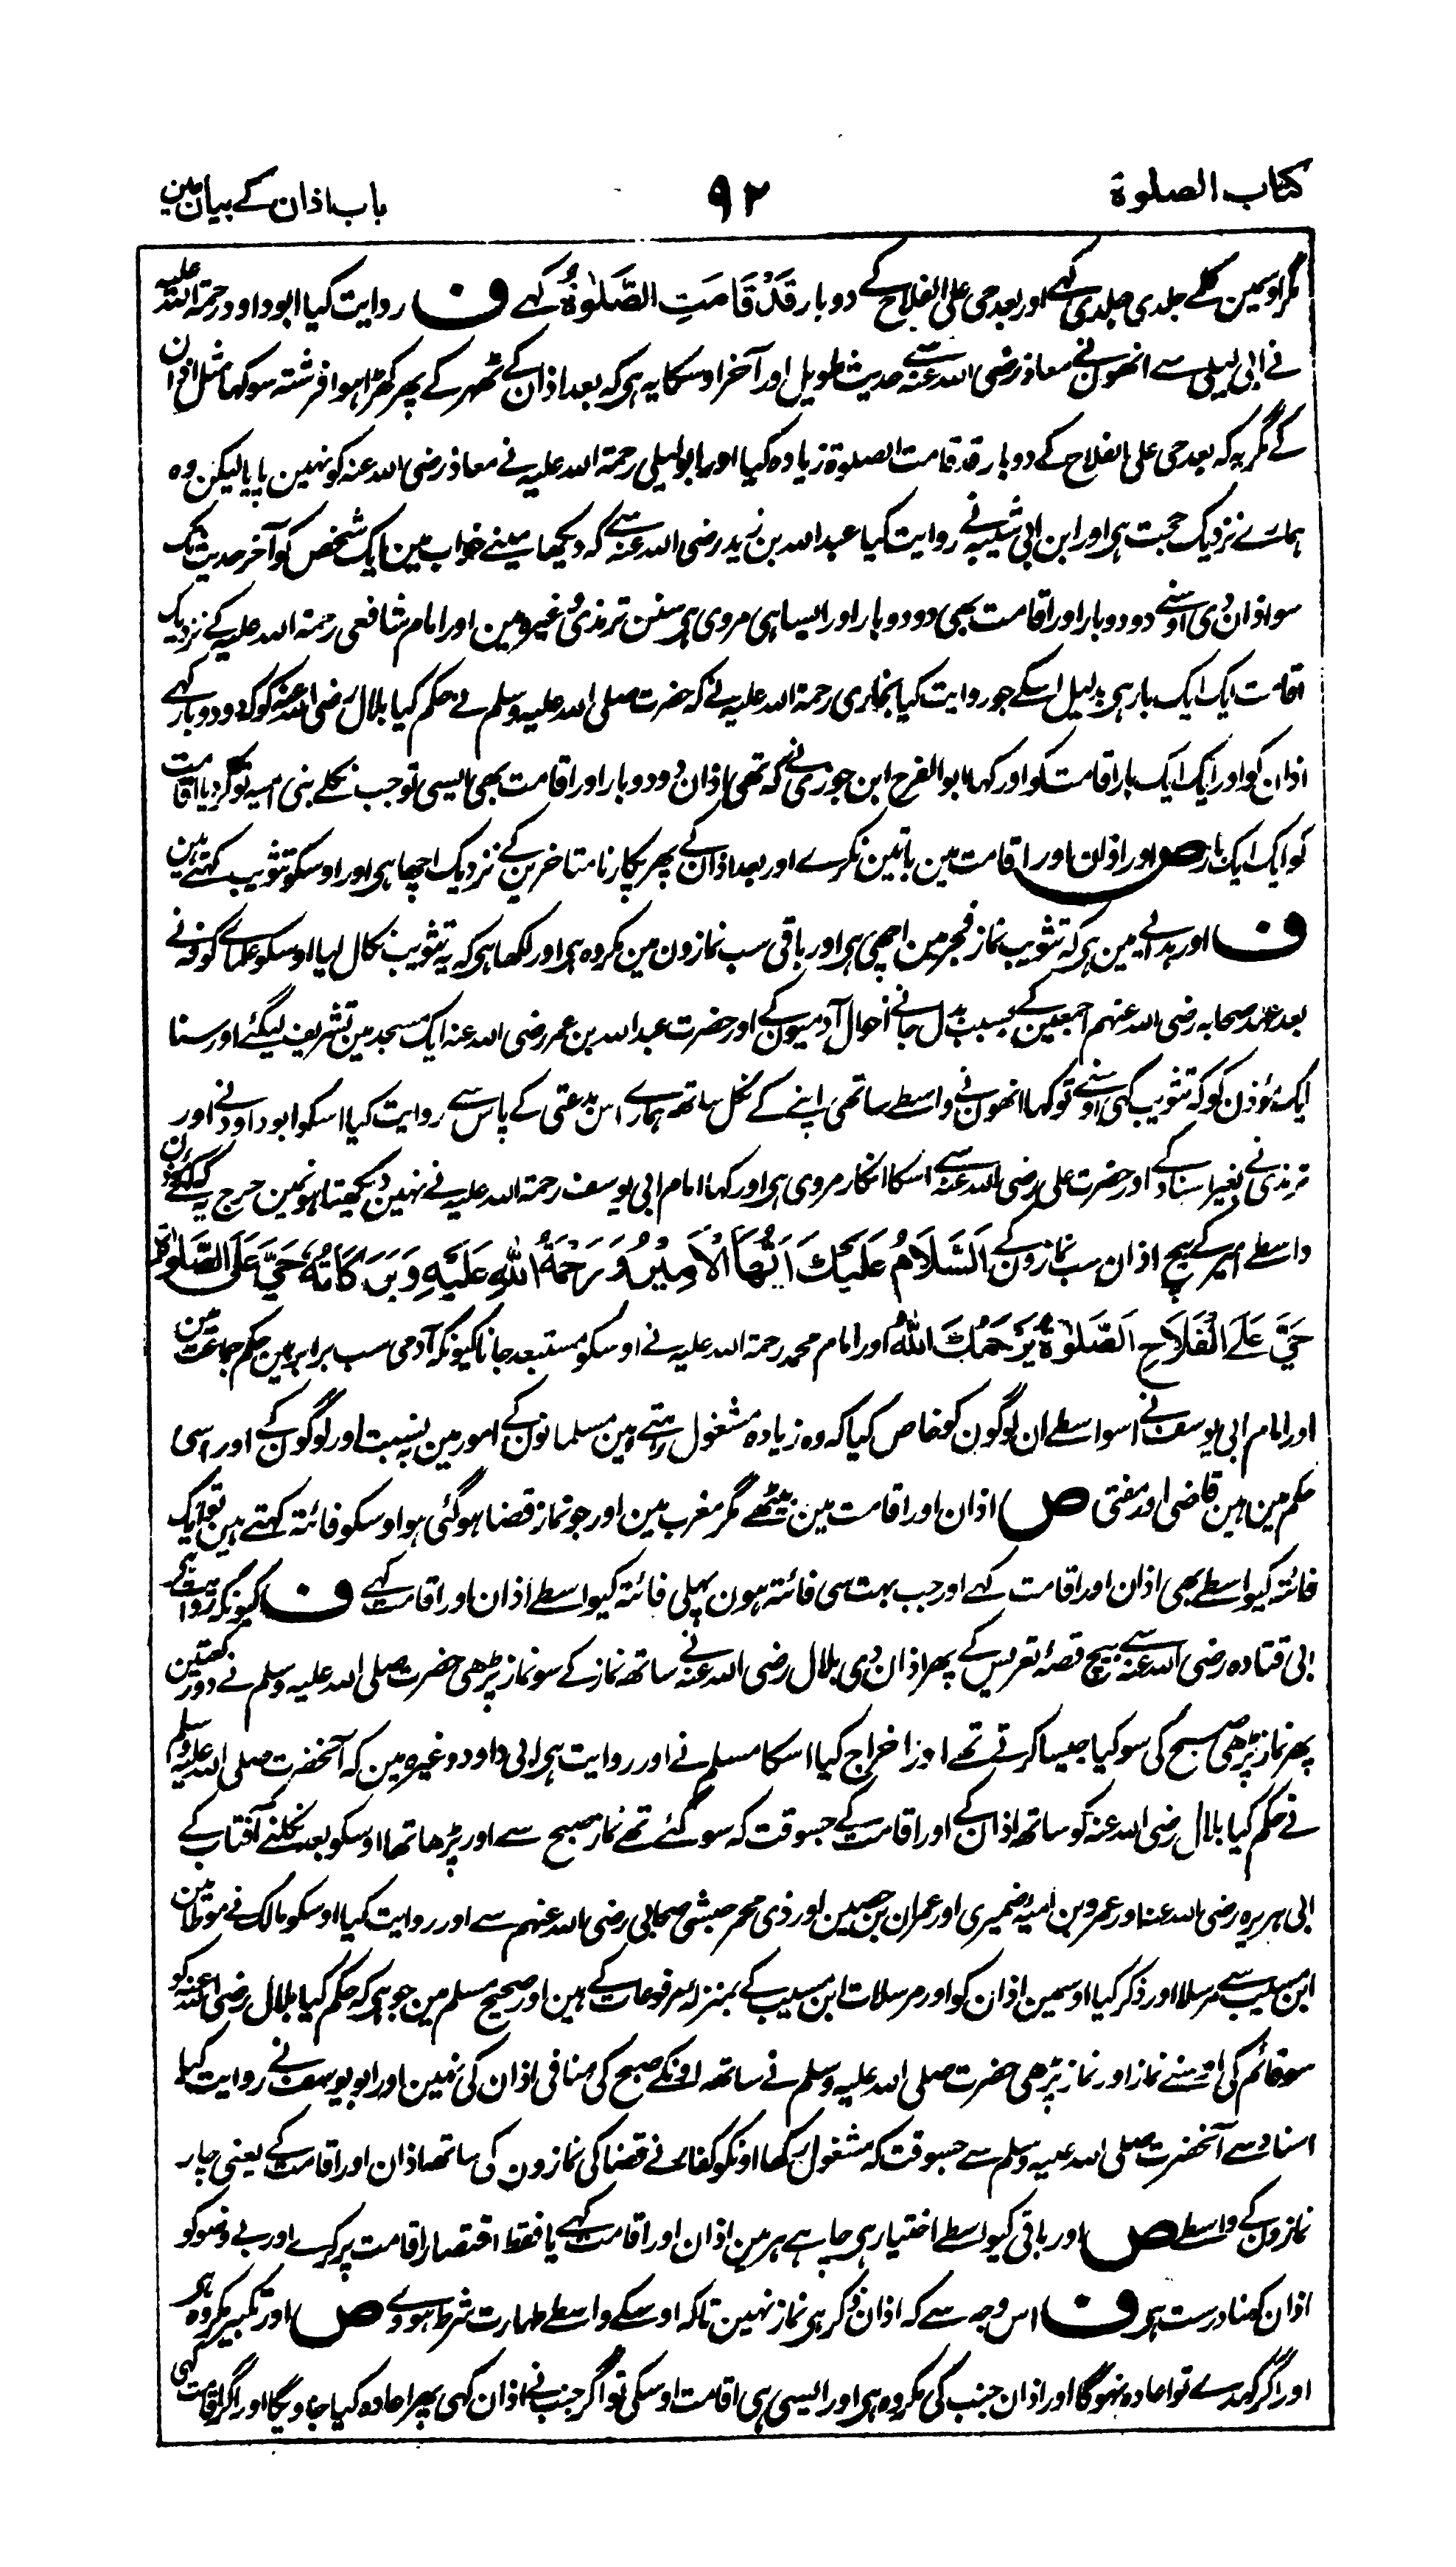 کتاب الصلوۃ ۹۲ باب اذان کے بیان مین
مگر اوسمین کلمے جلدی جلدی کہے اور بعد حی علی الفلاح کے دو بار قَدْ قَامَتِ الصَّلٰوۃُ کہے ف روایت کیا ابو داود رحمۃ اللہ علیہ
نے ابی لیلی سے انھون نے معاذ رضی اللہ عنہ سے حدیث طویل اور آخر اوسکا یہ ہی کہ بعد اذان کے ٹھہر کے پھر کھڑا ہوا فرشتہ سو کہا مثل اذان
کے مگر یہ کہ بعد حی علی الفلاح کے دو بار قد قامت الصلوۃ زیادہ کیا اور ابو لیلی رحمۃ اللہ علیہ نے معاذ رضی اللہ عنہ کو نہین پایا لیکن وہ
ہمارے نزدیک حجت ہی اور ابن ابی شیبہ نے روایت کیا عبد اللہ بن زید رضی اللہ عنہ سے کہ دیکھا مینے خواب مین ایک شخص کو آخر حدیث تک
سو اذان دی اوسنے دو دو بار اور اقامت بھی دو دو بار اور ایسا ہی مروی ہی سنن ترمذی وغیرہ مین اور امام شافعی رحمۃ اللہ علیہ کے نزدیک
اقامت ایک ایک بار ہی بدلیل اسکے جو روایت کیا بخاری رحمۃ اللہ علیہ نے کہ حضرت صلی اللہ علیہ وسلم نے حکم کیا بلال رضی اللہ عنہ کو کہ دو دو بار کہے
اذان کو اور ایک ایک بار اقامت کو اور کہا ابو الفرح ابن جوزی نے کہ تھی اذان دو دو بار اور اقامت بھی ایسی تو جب نکلے بنی امیہ تو کر دیا اقامت
کو ایک ایک بار ص اور اذان اور اقامت مین باتین نکرے اور بعد اذان کے پھر پکارنا متاخرین کے نزدیک اچھا ہی اور اوسکو تثویب کہتے ہین
ف اور ہدایے مین ہی کہ تثویب نماز فجر مین اچھی ہی اور باقی سب نمازون مین مکروہ ہی اور لکھا ہی کہ یہ تثویب نکال لیا اوسکو علمای کوفہ نے
بعد عہد صحابہ رضی اللہ عنہم اجمعین کے بسبب بدل جانے احوال آدمیون کے اور حضرت عبد اللہ بن عمر رضی اللہ عنہ ایک مسجد مین تشریف لیگئے اور سنا
ایک مؤذن کو کہ تثویب کہی اوسنے تو کہا انھون نے واسطے ساتھی اپنے کے نکل ساتھ ہمارے اس بدعتی کے پاس سے روایت کیا اسکو ابو داود نے اور
ترمذی نے بغیر اسناد کے اور حضرت علی رضی اللہ عنہ سے اسکا انکار مروی ہی اور کہا امام ابی یوسف رحمۃ اللہ علیہ نے نہین دیکھتا ہون مین حرج یہ کہ کہے مؤذن
واسطے امیر کے بیچ اذان سب نمازون کے اَلسَّلَامُ عَلَیْكَ اَیُّهَا الْاَمِیْرُ وَرَحْمَةُ اللهِ عَلَیْهِ وَبَرَكَاتُهٗ حَیَّ عَلَی الصَّلٰوۃِ
حَیَّ عَلَی الْفَلَاحِ اَلصَّلٰوۃُ یَرْحَمُكَ اللهُ اور امام محمد رحمۃ اللہ علیہ نے اوسکو مستبعد جانا کیونکہ آدمی سب برابر ہین حکم جماعت مین
اور امام ابی یوسف نے اسواسطے ان لوگون کو خاص کیا کہ وہ زیادہ مشغول رہتے ہین مسلمانون کے امور مین بنسبت اور لوگون کے اور اسی
حکم مین ہین قاضی اور مفتی ص اذان اور اقامت مین بیٹھے مگر مغرب مین اور جو نماز قضا ہو گئی ہو اوسکو فائتہ کہتے ہین تو ایک
فائتہ کیواسطے بھی اذان اور اقامت کہے اور جب بہت سی فائتہ ہون پہلی فائتہ کیواسطے اذان اور اقامت کہے ف کیونکہ روایت ہی
ابی قتادہ رضی اللہ عنہ سے بیچ قصۂ تعریس کے پھر اذان دی بلال رضی اللہ عنہ نے ساتھ نماز کے سو نماز پڑھی حضرت صلی اللہ علیہ وسلم نے دو رکعتین
پھر نماز پڑھی صبح کی سو کیا جیسا کرتے تھے اور اخراج کیا اسکا مسلم نے اور روایت ہی ابی داود وغیرہ مین کہ آنحضرت صلی اللہ علیہ وسلم
نے حکم کیا بلال رضی اللہ عنہ کو ساتھ اذان کے اور اقامت کے جسوقت کہ سو گئے تھے نماز صبح سے اور پڑھا تھا اوسکو بعد نکلنے آفتاب کے
ابی ہریرہ رضی اللہ عنہ اور عمرو بن امیہ ضمیری اور عمران بن حصین اور ذی مخمر حبشی صحابی رضی اللہ عنہم سے اور روایت کیا اوسکو مالک نے موطا مین
ابن مسیب سے مرسلا اور ذکر کیا اوسمین اذان کو اور مرسلات ابن مسیب کے بمنزلہ مرفوعات کے ہین اور صحیح مسلم مین جو ہی کہ حکم کیا بلال رضی اللہ عنہ کو
سو قائم کی اوسنے نماز اور نماز پڑھی حضرت صلی اللہ علیہ وسلم نے ساتھ اونکے صبح کی منافی اذان کی نہین اور ابو یوسف نے روایت کیا
اسناد سے آنحضرت صلی اللہ علیہ وسلم سے جسوقت کہ مشغول رکھا اونکو کفار نے قضا کی نمازون کی ساتھ اذان اور اقامت کے یعنی چار
نمازون کے واسطے ص اور باقی کیواسطے اختیار ہی چاہے ہر مین اذان اور اقامت کہے یا فقط اقتصار اقامت پر کرے اور بے وضو کو
اذان کہنا درست ہی ف اس وجہ سے کہ اذان ذکر ہی نماز نہین تاکہ اوسکے واسطے طہارت شرط ہووے ص اور تکبیر مکروہ ہی
اور اگر کہدے تو اعادہ نہوگا اور اذان جنب کی مکروہ ہی اور ایسی ہی اقامت اوسکی تو اگر جنب نے اذان کہی پھر اعادہ کیا جاویگا اور اگر اقامت کہی